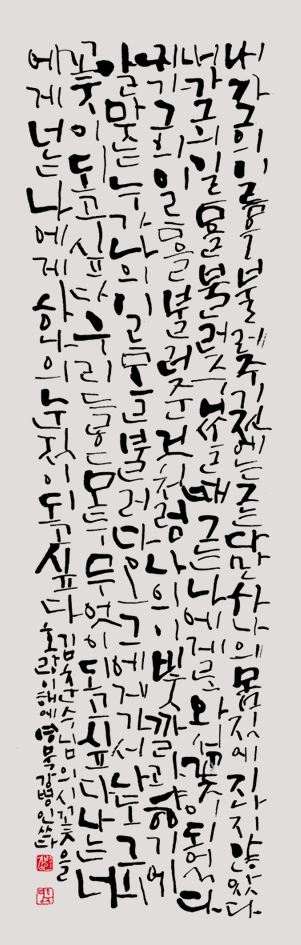 내가그의이름을불러주기전에는그는다만하나의몸짓에지나지않았다
내가그의이름을불러주었을때그는나에게로와서꽃이되었다
내가그의이름을불러준것처럼나의이빛깔과향기에
알맞은누가나의이름을불러다오그에게가서나도그의
꽃이되고싶다우리들은모두무엇이되고싶다나는너
에게너는나에게하나의눈짓이되고싶다
김춘수님의시꽃을
호랑이해에영묵강병인쓰다